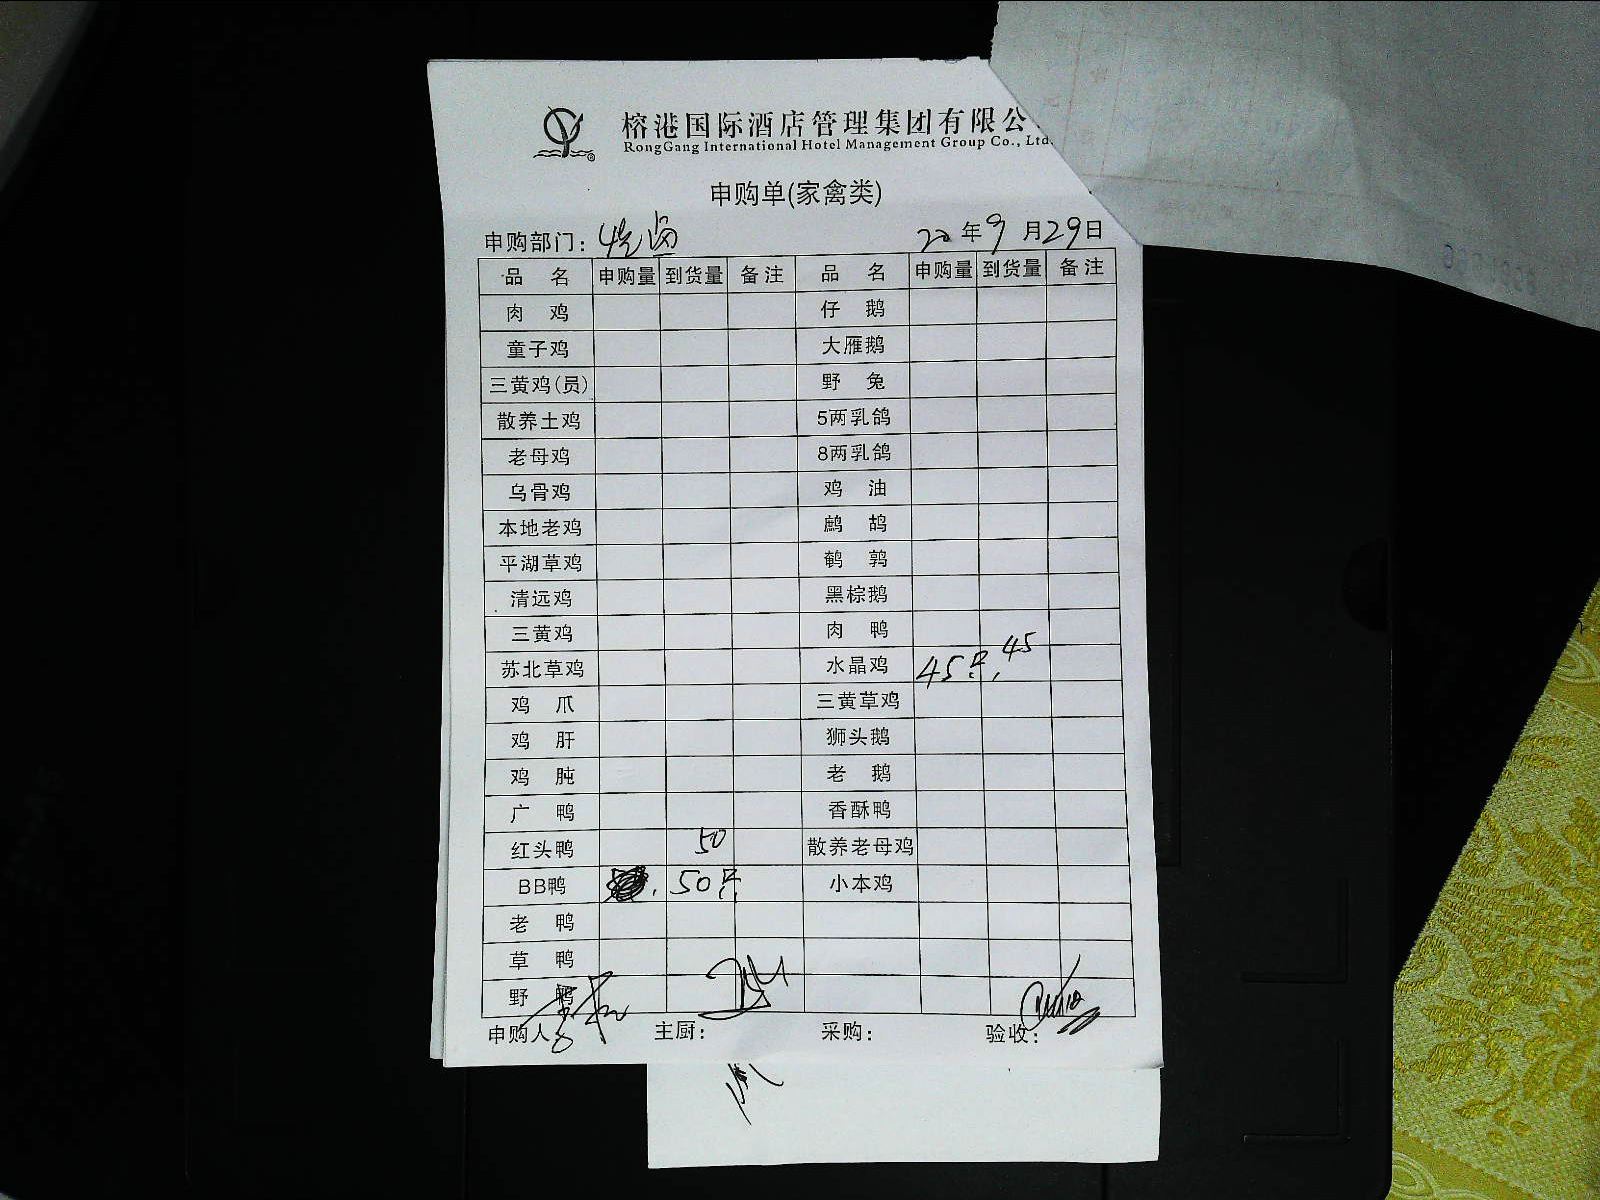 榕港国际酒店管理集团有限公
RongGang International Hotel Management Group Co., Ltd.
申购单(家禽类)
申购部门: 烧卤 20年9月29日
品 名 申购量 到货量 备注 品 名 申购量 到货量 备注
肉 鸡 仔 鹅
童子鸡 大雁鹅
三黄鸡(员) 野 兔
散养土鸡 5两乳鸽
老母鸡 8两乳鸽
乌骨鸡 鸡 油
本地老鸡 鹧 鸪
平湖草鸡 鹌 鹑
清远鸡 黑棕鹅
三黄鸡 肉 鸭
苏北草鸡 水晶鸡 45只 45
鸡 爪 三黄草鸡
鸡 肝 狮头鹅
鸡 肫 老 鹅
广 鸭 香酥鸭
红头鸭 50 散养老母鸡
BB鸭 50只 小本鸡
老 鸭
草 鸭
野 鸭
申购人: 主厨: 采购: 验收: